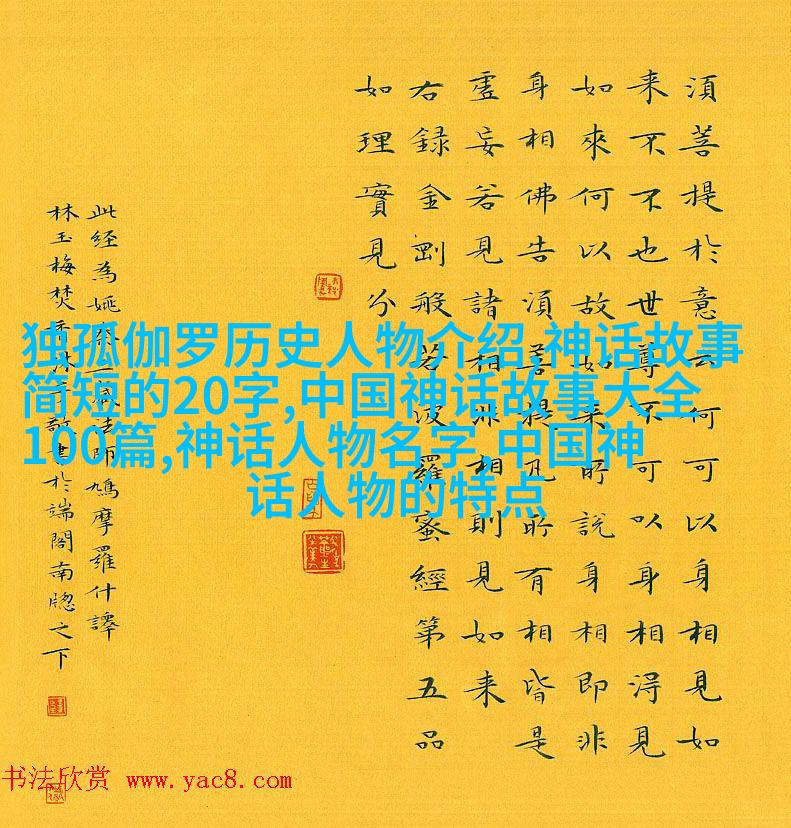 須菩提於意云何可以身相見如
来不不也世尊不可以身相淂見
如來何以故如来所說身相即非
身相佛告須菩提凡所有相皆是
虛妄若見諸相非相則見如来
右録金剛般若波羅蜜經第五品
如理實見分
此経為姚秦三藏法師鳩摩羅什譯
林玉梅焚香沐手敬書於端閣南牕之下
独孤伽罗历史人物介绍,神话故事
简短的20字,中国神话故事大全
100篇,神话人物名字,中国神
话人物的特点
书法欣赏 www.yac8.com